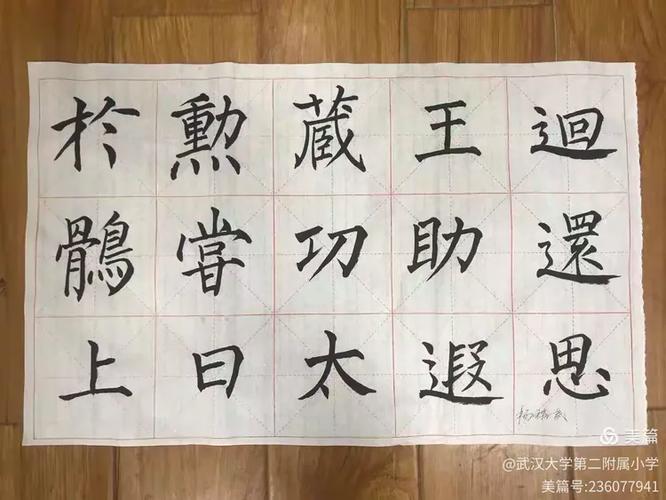 於勳蔵王迴
鶻甞功助還
上曰太遐思
美篇
@武汉大学第二附属小学
美篇号:236077941